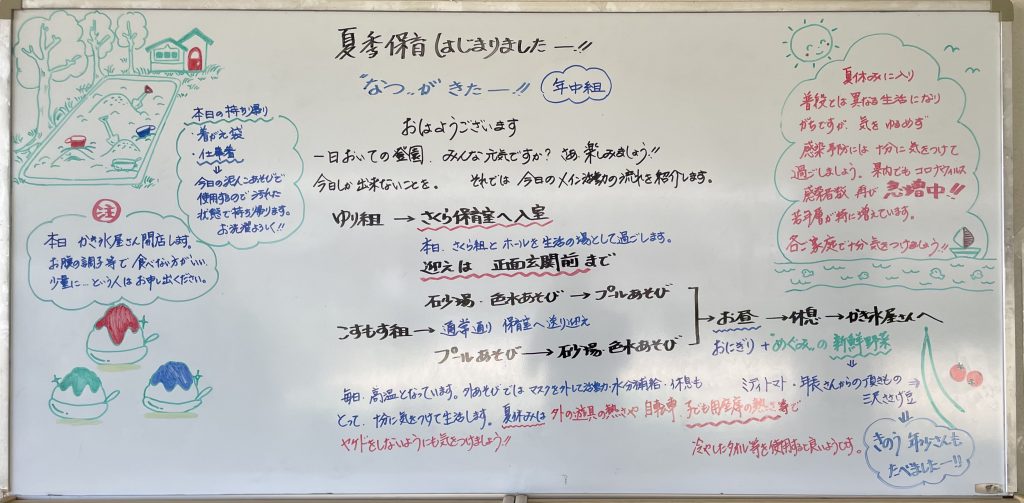 夏季保育はじまりましたー!!
"なつ"がきたー!!
年中組
おはようございます
一日おいての登園。みんな元気ですか? さあ 楽しみましょう!!
今日しか出来ないことを。 それでは今日のメイン活動の流れを紹介します。
本日の持ち帰り
・着がえ袋
・仕事着
今日の泥んこあそびで
使用するので汚れた
状態で持ち帰ります。
お洗濯よろしく!!
注
本日 かき氷屋さん開店します。
お腹の調子等で食べない方がいい、
少量に…という人はお申し出ください。
ゆり組 → さくら保育室へ入室
本日、さくら組とホールを生活の場として過ごします。
迎えは 正面玄関前まで
石砂場・色水あそび → プールあそび
こすもす組 → 通常通り 保育室へ送り迎え
プールあそび → 石砂場・色水あそび
→ お昼 → 休息 → かき氷屋さんへ
おにぎり + "めぐみ"の新鮮野菜
ミディトマト・年長さんからの頂きもの ⇒
三尺ささげ豆
きのう 年少さんも
たべましたー!!
毎日、高温となっています。外あそびでは マスクを外して活動・水分補給・休息も
とって、十分に気をつけて生活します。夏休みは 外の遊具の熱さや 自転車 子ども用座席の熱さ等で
ヤケドをしないようにも気をつけましょう!!
冷やしたタオル等を使用すると良いようです。
夏休みに入り
普段とは異なる生活になり
がちですが、気をゆるめず
感染予防には十分に気をつけて
過ごしましょう。県内でもコロナウイルス
感染者数 再び 急増中!!
若年層が特に増えています。
各ご家庭で十分気をつけましょう!!